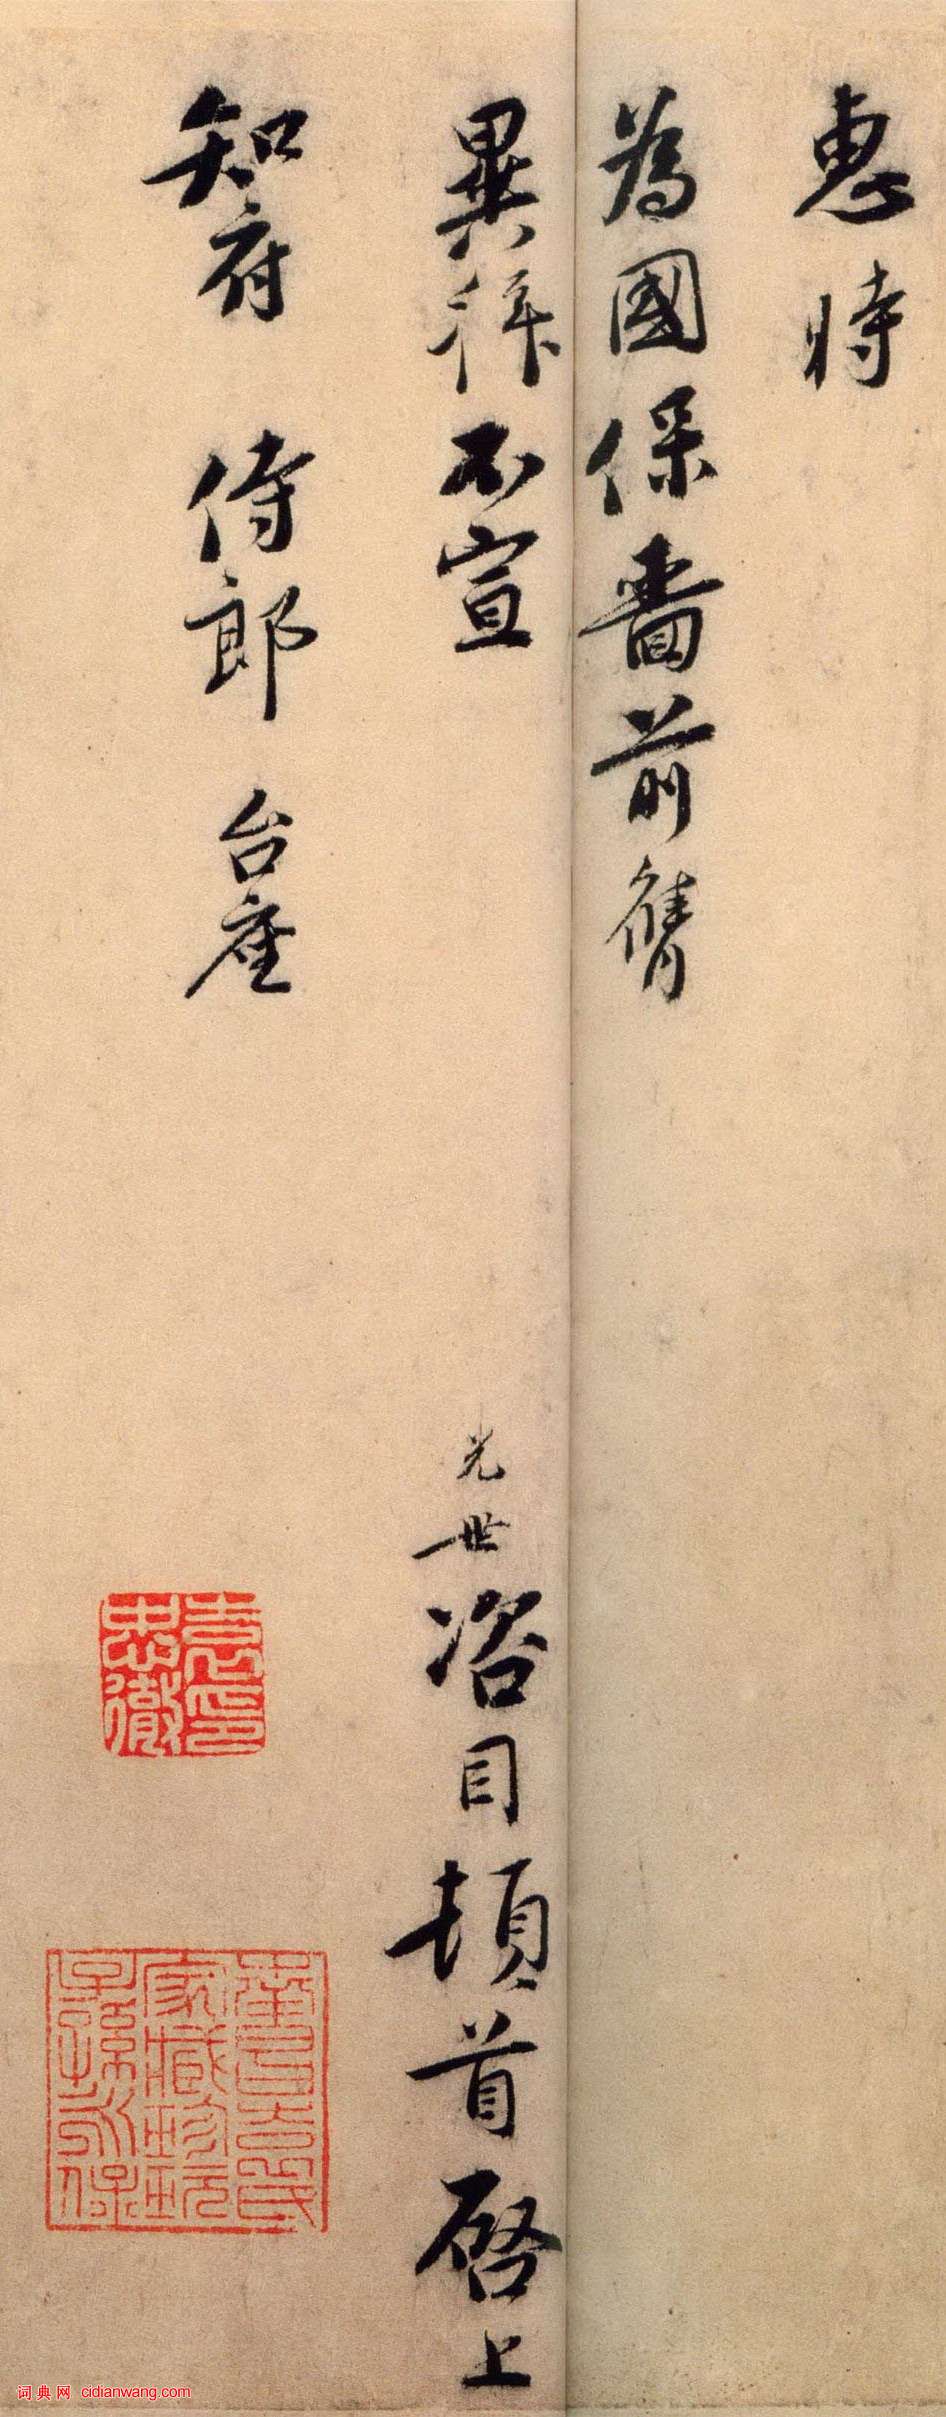 惠時
為國保嗇前膺
異拜不宣
光世咨目頓首啓上
知府侍郎台座
袁忠徹印
家藏珍玩子孫永保
词典网 cidianwang.com